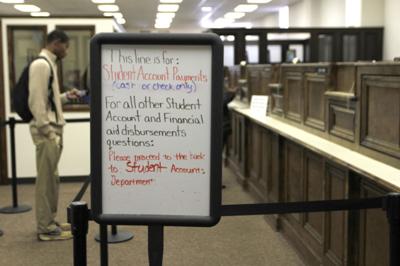 This line is for:
Student Account Payments
(cash or check only)
For all other Student
Account and Financial
aid disbursements
questions:
Please proceed to the back
to Student Accounts
Department.